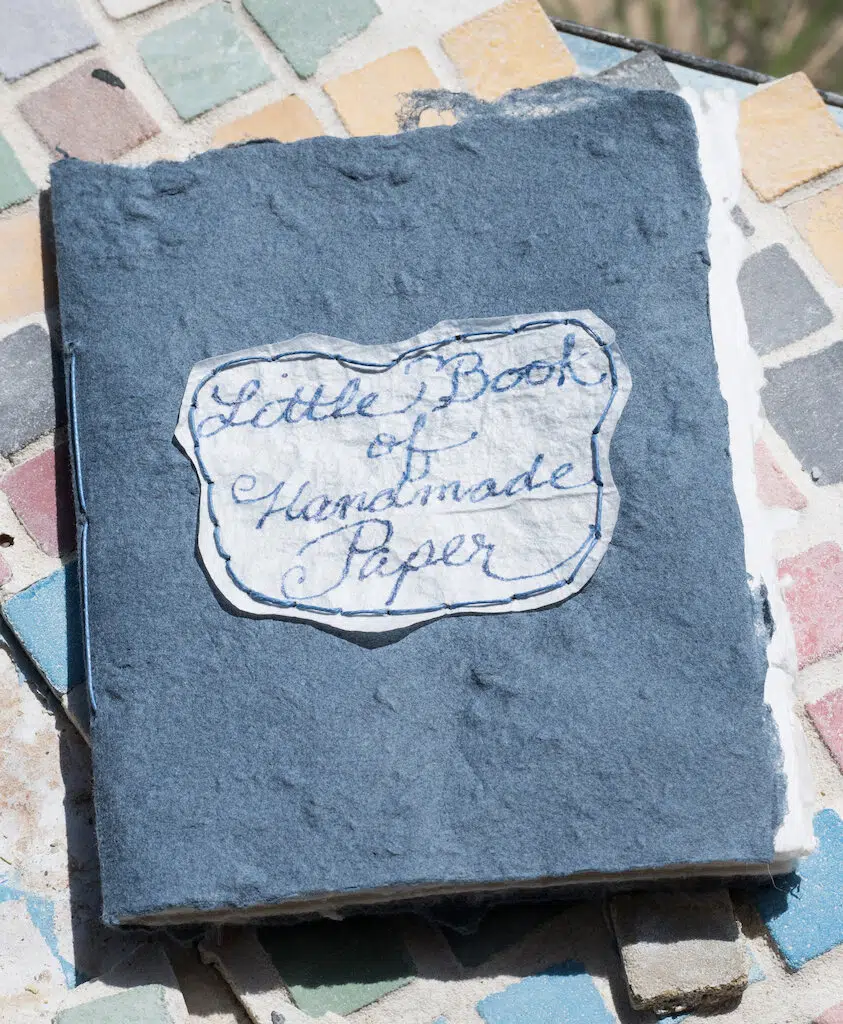 Little Book
of
Handmade
Paper